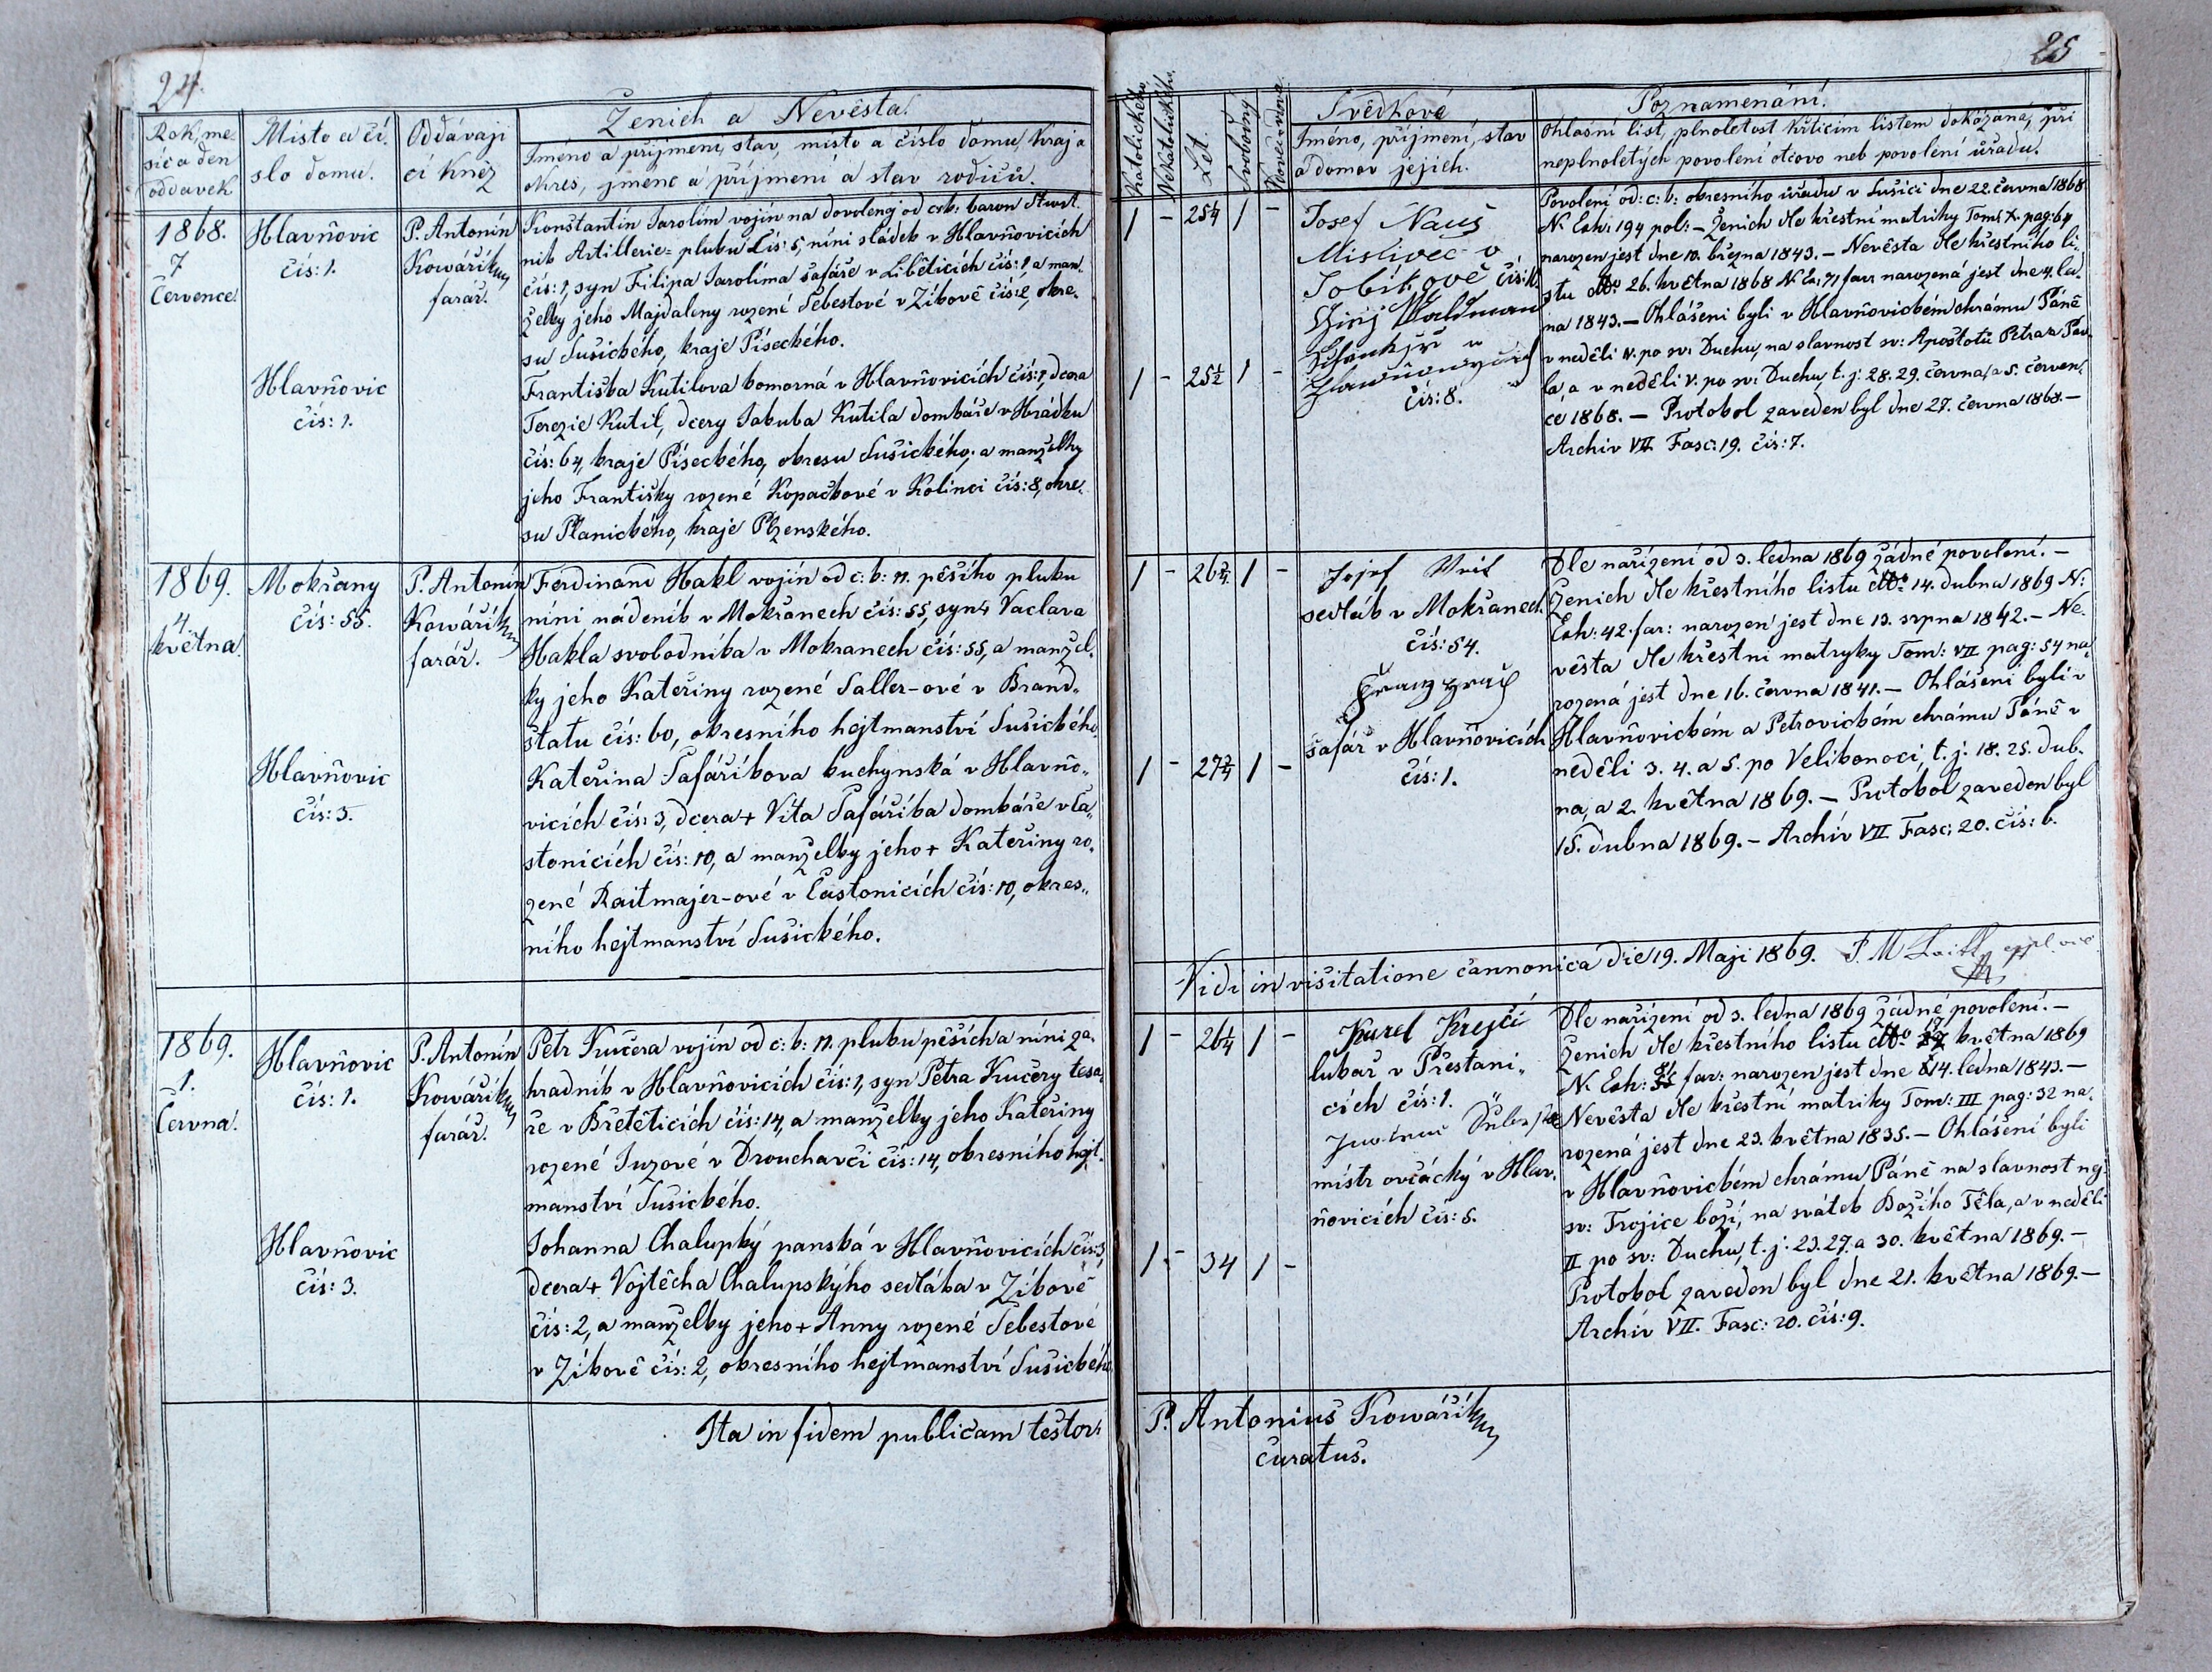 24.
Rok, mě-
síc a den
oddavek
Místo a čí-
slo domu.
Oddávají
cí Kněz
Ženich a Nevěsta.
Jméno a příjmení, stav, místo a číslo domu, kraj a
okres, jméno a příjmení a stav rodičů.
1868.
7
Července
Hlavňovic
čís: 1.
P. Antonín
Kowářík
farář.
Konstantin Jarolím vojín na dovolený od c: k: baron
nik Artillerie= pluku čís: 5, níní sládek v Hlavňovicích
čís: 1, syn Filipa Jarolíma šafáře v Liběticích čís: 1, a man-
želky jeho Majdaleny rozené Šebestové v Zíbově čís: 2, okre-
su Sušického, kraje Píseckého.
Hlavňovic
čís: 1.
Františka Kutilova komorná v Hlavňovicích čís: 1, dcera
Terezie Kutil, dcery Jakuba Kutila domkáře v Hrádku
čís: 64, kraje Píseckého, okresu Sušického, a manželky
jeho Františky rozené Kopačkové v Kolinci čís: 8, okre-
su Planického, kraje Plzenského.
1869.
4
května.
Mokřany
čís: 55.
P. Antonín
Kowářík
farář.
Ferdinand Hakl vojín od c: k: 11. pěšího pluku
níní nádeník v Mokřanech čís: 55, syn + Vaclava
Hakla svobodníka v Mokřanech čís: 55, a manžel-
ky jeho Kateřiny rozené Saller-ové v Brand-
štatu čís: 60, okresního hejtmanství Sušického
Hlavňovic
čís: 3.
Kateřina Šafáříkova kuchynská v Hlavňo-
vicích čís: 3, dcera + Víta Šafáříka domkáře v Ča-
stonicích čís: 10, a manželky jeho + Kateřiny ro-
zené Raitmajer-ové v Častonicích čís: 10, okres-
ního hejtmanství Sušického.
1869.
1.
Června.
Hlavňovic
čís: 1.
P. Antonín
Kowářík
farář.
Petr Kučera vojín od c: k: 11. pluku pěších a níní za-
hradník v Hlavňovicích čís: 1, syn Petra Kučery tesa-
ře v Břetěticích čís: 14, a manželky jeho Kateřiny
rozené Juzové v Drouchavči čís: 14, okresního hejt-
manství Sušického.
Hlavňovic
čís: 3.
Johanna Chalupký panská v Hlavňovicích čís: 3,
dcera + Vojtěcha Chalupskýho sedláka v Zíbově
čís: 2, a manželky jeho + Anny rozené Šebestové
v Zíbově čís: 2, okresního hejtmanství Sušického
Ita in fidem publicam testor:
25
Katolického
Nekatolického
Let
Svobodný
Vdovec, vdova
Svědkové
Jméno, příjmení, stav
a domov jejich.
Poznamenání.
Ohlašní list, plnoletost křticím listem dokázaná, při
neplnoletých povolení otcovo neb povolení úřadu.
1 - 25¼ 1 -
Josef Nauš
Mislivec v
Sobikově čís:
v
čís: 8.
1 - 25½ 1 -
Povolení od: c: k: okresního úřadu v Sušici dne 22. června 1868
N. Exh: 194 pol: – Ženich dle křestní matriky Tom: X. pag: 64
narozen jest dne 10. března 1843. – Nevěsta dle křestního li-
stu ddo 26. května 1868 N. Ex: 71 far: narozená jest dne 4. led-
na 1843. – Ohlášeni byli v Hlavňovickém chrámu Páně
v neděli IV. po sv: Duchu, na slavnost sv: Apoštolů Petra a Pav-
la, a v neděli V. po sv: Duchu, t. j: 28. 29. června, a 5. červen-
ce 1868. – Protokol zaveden byl dne 27. června 1868. –
Archiv VII Fasc: 19. čís: 7.
1 - 26¾ 1 -
sedlák v Mokřanech
čís: 54.
šafář v Hlavňovicích
čís: 1.
1 - 27¾ 1 -
Dle nařízení od 3. ledna 1869 žádné povolení. –
Ženich dle křestního listu ddo 14. dubna 1869 N:
Exh: 42. far: narozen jest dne 13. srpna 1842. – Ne-
věsta dle křestní matryky Tom: VII pag: 54 na-
rozená jest dne 16. června 1841. – Ohlášeni byli v
Hlavňovickém a Petrovickém chrámu Páně v
neděli 3. 4. a 5. po Velikonoci, t. j: 18. 25. dub-
na, a 2. května 1869. – Protokol zaveden byl
15. dubna 1869. – Archiv VII Fasc: 20. čís: 6.
Vidi in visitatione cannonica die 19. Maji 1869.
1 - 26¼ 1 -
Karel Krejčí
lukař v Přestani-
cích čís: 1.
místr ovčácký v Hlav-
ňovicích čís: 5.
1 - 34 1 -
Dle nařízení od 3. ledna 1869 žádné povolení. –
Ženich dle křestního listu ddo 17 května 1869
N. Exh: far: narozen jest dne 14. ledna 1843. –
Nevěsta dle křestní matriky Tom: III pag: 32 na-
rozená jest dne 23. května 1835. – Ohlášení byli
v Hlavňovickém chrámu Páně na slavnost nej-
sv: Trojice boží, na svátek Božího Těla, a v neděli
II po sv: Duchu, t. j: 23. 27. a 30. května 1869. –
Protokol zaveden byl dne 21. května 1869. –
Archiv VII. Fasc: 20. čís: 9.
P. Antonius Kowářík
curatus.